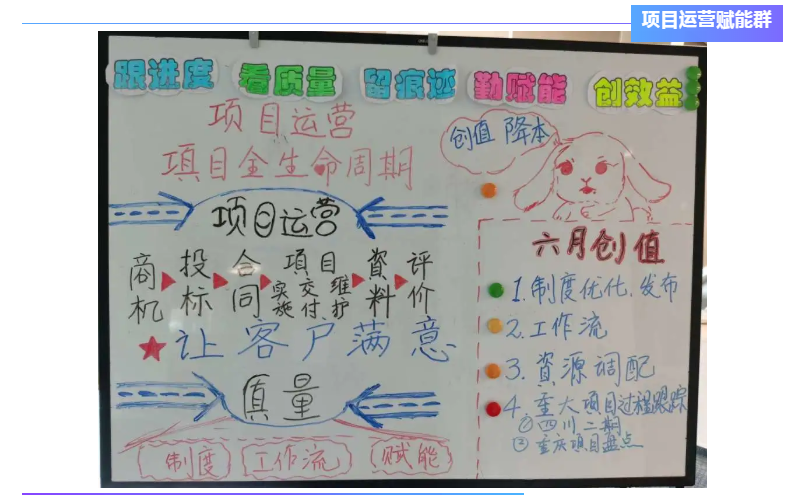 项目运营赋能群
跟进度 看质量 留痕迹 勤赋能 创效益
项目运营
項目全生命周期
创值 降本
项目运营
商机 投标 合同 項目 实施 交付 维护 資料 评价
让客户满意
量
制度 工作流 赋能
六月创值
1.制度优化、发布
2.工作流
3.資源调配
4.重大项目过程跟踪
①四川二期
②重庆项目盘点